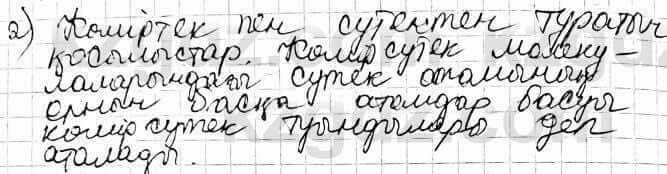 2) Көміртек пен сутектен тұратын
қосылыстар. Көмірсутек молеку-
лаларындағы сутек атамының
орнын басқа атомдар басуы
көмірсутек туындылары деп
аталады.